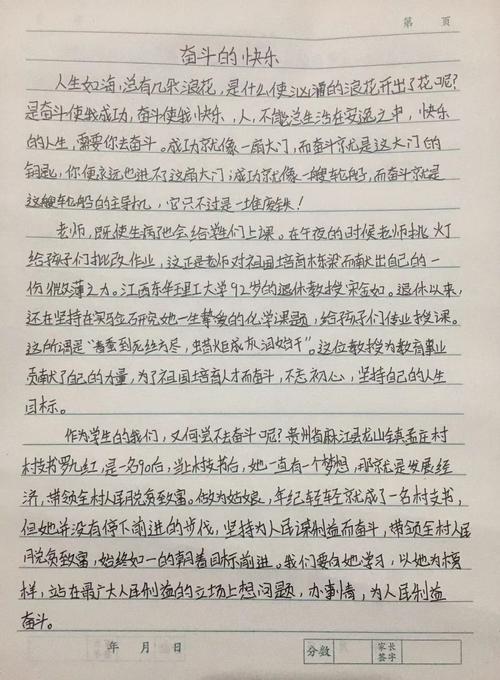 第 页
奋斗的快乐
人生如海,总有几朵浪花,是什么使汹涌的浪花开出了花呢?
是奋斗使我成功,奋斗使我快乐,人,不能总生活在安逸之中,快乐
的人生,需要你去奋斗。成功就像一扇大门,而奋斗就是这大门的
钥匙,你便永远也进不了这扇大门;成功就像一艘轮船,而奋斗就是
这艘轮船的主导机,它只不过是一堆废铁!
老师,既使生病他会给学生们上课。在午夜的时候老师挑灯
给孩子们批改作业,这正是老师对祖国培育栋梁而献出自己的一
份微薄之力。江西东华理工大学92岁的退休教授宋金如。退休以来,
还在坚持在实验室研究她一生挚爱的化学课题,给孩子们传业授课。
这所谓是"春蚕到死丝方尽,蜡炬成灰泪始干"。这位教授为教育事业
贡献了自己的力量,为了祖国培育人才而奋斗,不忘初心,坚持自己的人生
目标。
作为学生的我们,又何尝不去奋斗呢?贵州省麻江县龙山镇孟庄村
村支书罗九红,是一名90后,当上村支书后,她一直有一个梦想,那就是发展经
济,带领全村人民脱贫致富。做为姑娘,年纪轻轻就成了一名村支书,
但她并没有停下前进的步伐,坚持为人民谋利益而奋斗,带领全村人民
脱贫致富,始终如一的朝着目标前进。我们要向她学习,以她为榜
样,站在最广大人民利益的立场上想问题,办事情,为人民利益
奋斗。
年 月 日 分数 家长签字